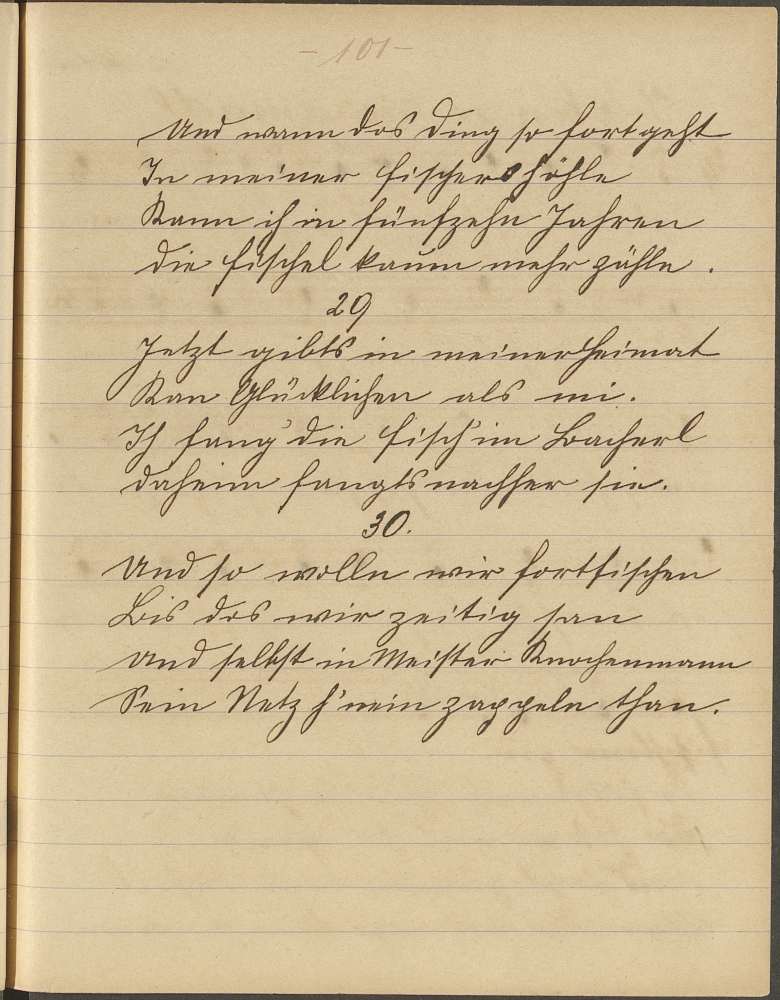 - 101 -
Und wann das Ding so fort geht
In meiner Fischershöhle
Kann ich in fünfzehn Jahren
Die Fischel kaum mehr zähln.
29
Jetzt gibts in meiner Heimat
Kan Glücklichen als mi.
Ich fang' die Fisch' im Bacherl
Daheim fangts nachher sie.
30.
Und so wolln wir fortfischen
Bis das wir zeitig san
Und selbst in Meister Knochenmann
Sein Netz h'nein zappeln than.